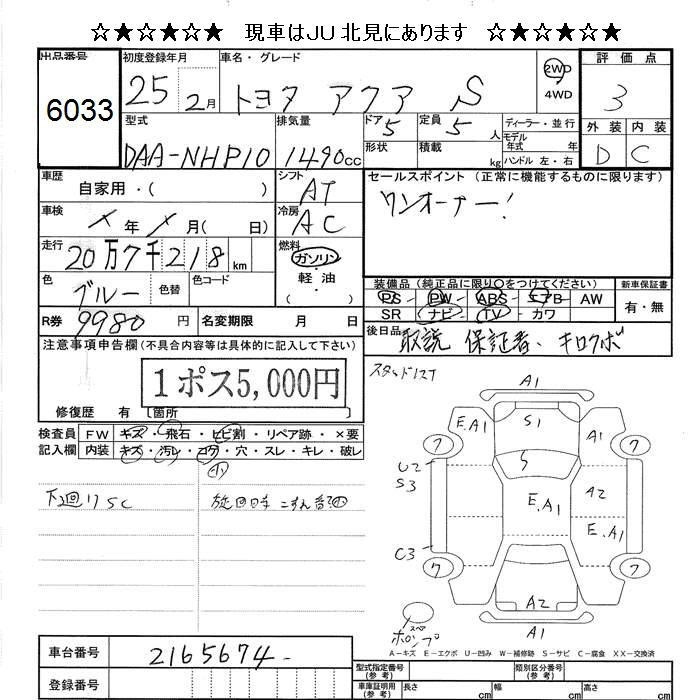 ☆★☆★☆★☆ 現車はJU北見にあります ☆★☆★☆★☆
出品番号 初度登録年月 車名・グレード 評価点
6033 25 2月 トヨタ アクア S 2WD 4WD 3
型式 排気量 ドア 5 定員 5人 ディーラー・並行 外装 内装
形状 積載 kg モデル年式 年
DAA-NHP10 1490cc ハンドル 左・右 D C
車歴 自家用・( ) シフト AT セールスポイント (正常に機能するものに限ります)
ワンオーナー!
車検 年 月( 日) 冷房 AC
走行 20万7千218km 燃料 ガソリン・軽油 ( )
色 ブルー 色替 色コード
装備品 (純正品に限り○をつけてください) 新車保証書
PS - PW - ABS - エアB - AW 有・無
SR ナビ TV カワ
R券 9980円 名変期限 月 日
後日品 取説 保証書、キロクボ
注意事項申告欄(不具合内容等は具体的に記入して下さい)
1ポス5,000円
修復歴 有〔箇所 〕
スタッド12T
検査員記入欄 FW キズ・飛石・ヒビ割・リペア跡・×要
内装 キズ・汚レ・コゲ・穴・スレ・キレ・破レ
小
下廻りSC
A1
E.A1 S1 A1
7 7
S
U2
S3
E.A1 A2
E.A1
C3
7 7
A2
A1
スペア
A-キズ E-エクボ U-凹み W-補修跡 S-サビ C-腐食 XX-交換済
車台番号 2165674
登録番号
型式指定番号(参考) 類別区分番号(参考)
車庫証明用(参考) 長さ cm 幅 cm 高さ cm